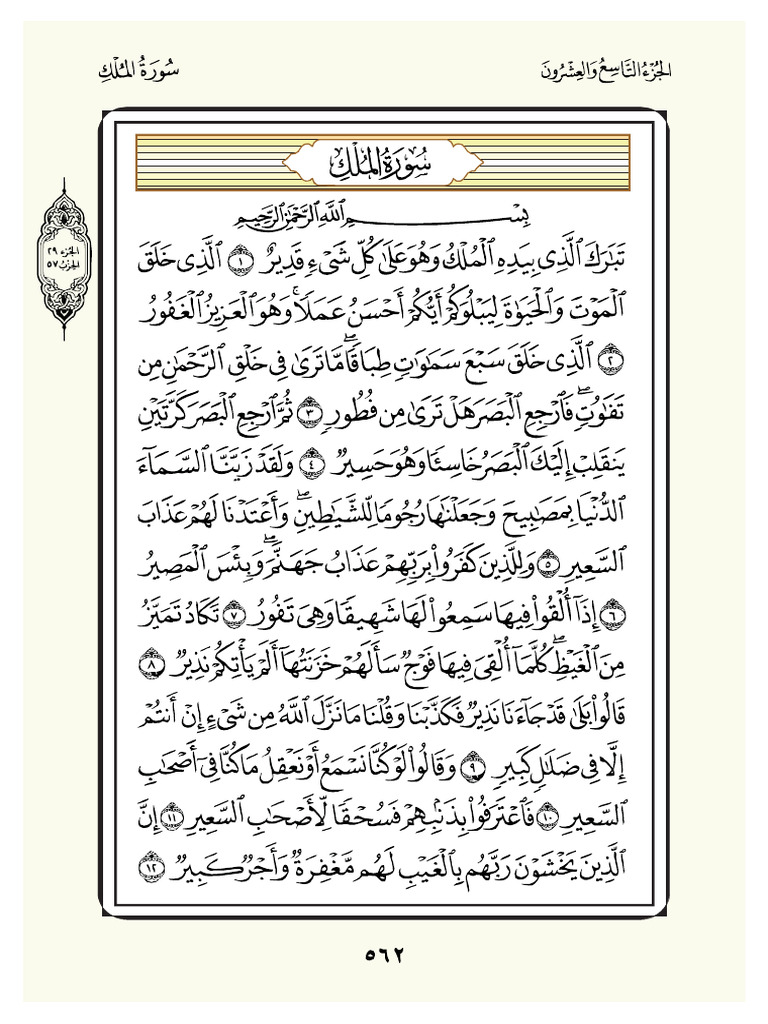 الجُزْءُ التَّاسِعُ وَالعِشْرُونَ
سُورَةُ المُلْكِ
سُورَةُ المُلْكِ
الجزء ٢٩
الحزب ٥٧
بِسْمِ اللَّهِ الرَّحْمَٰنِ الرَّحِيمِ
تَبَارَكَ الَّذِي بِيَدِهِ الْمُلْكُ وَهُوَ عَلَىٰ كُلِّ شَيْءٍ قَدِيرٌ ١ الَّذِي خَلَقَ
الْمَوْتَ وَالْحَيَوٰةَ لِيَبْلُوَكُمْ أَيُّكُمْ أَحْسَنُ عَمَلًا ۚ وَهُوَ الْعَزِيزُ الْغَفُورُ
٢ الَّذِي خَلَقَ سَبْعَ سَمَٰوَٰتٍ طِبَاقًا ۖ مَّا تَرَىٰ فِي خَلْقِ الرَّحْمَٰنِ مِن
تَفَٰوُتٍ ۖ فَارْجِعِ الْبَصَرَ هَلْ تَرَىٰ مِن فُطُورٍ ٣ ثُمَّ ارْجِعِ الْبَصَرَ كَرَّتَيْنِ
يَنقَلِبْ إِلَيْكَ الْبَصَرُ خَاسِئًا وَهُوَ حَسِيرٌ ٤ وَلَقَدْ زَيَّنَّا السَّمَاءَ
الدُّنْيَا بِمَصَٰبِيحَ وَجَعَلْنَٰهَا رُجُومًا لِّلشَّيَٰطِينِ ۖ وَأَعْتَدْنَا لَهُمْ عَذَابَ
السَّعِيرِ ٥ وَلِلَّذِينَ كَفَرُوا بِرَبِّهِمْ عَذَابُ جَهَنَّمَ ۖ وَبِئْسَ الْمَصِيرُ
٦ إِذَا أُلْقُوا فِيهَا سَمِعُوا لَهَا شَهِيقًا وَهِيَ تَفُورُ ٧ تَكَادُ تَمَيَّزُ
مِنَ الْغَيْظِ ۖ كُلَّمَا أُلْقِيَ فِيهَا فَوْجٌ سَأَلَهُمْ خَزَنَتُهَا أَلَمْ يَأْتِكُمْ نَذِيرٌ ٨
قَالُوا بَلَىٰ قَدْ جَاءَنَا نَذِيرٌ فَكَذَّبْنَا وَقُلْنَا مَا نَزَّلَ اللَّهُ مِن شَيْءٍ إِنْ أَنتُمْ
إِلَّا فِي ضَلَٰلٍ كَبِيرٍ ٩ وَقَالُوا لَوْ كُنَّا نَسْمَعُ أَوْ نَعْقِلُ مَا كُنَّا فِي أَصْحَٰبِ
السَّعِيرِ ١٠ فَاعْتَرَفُوا بِذَنۢبِهِمْ فَسُحْقًا لِّأَصْحَٰبِ السَّعِيرِ ١١ إِنَّ
الَّذِينَ يَخْشَوْنَ رَبَّهُم بِالْغَيْبِ لَهُم مَّغْفِرَةٌ وَأَجْرٌ كَبِيرٌ ١٢
٥٦٢